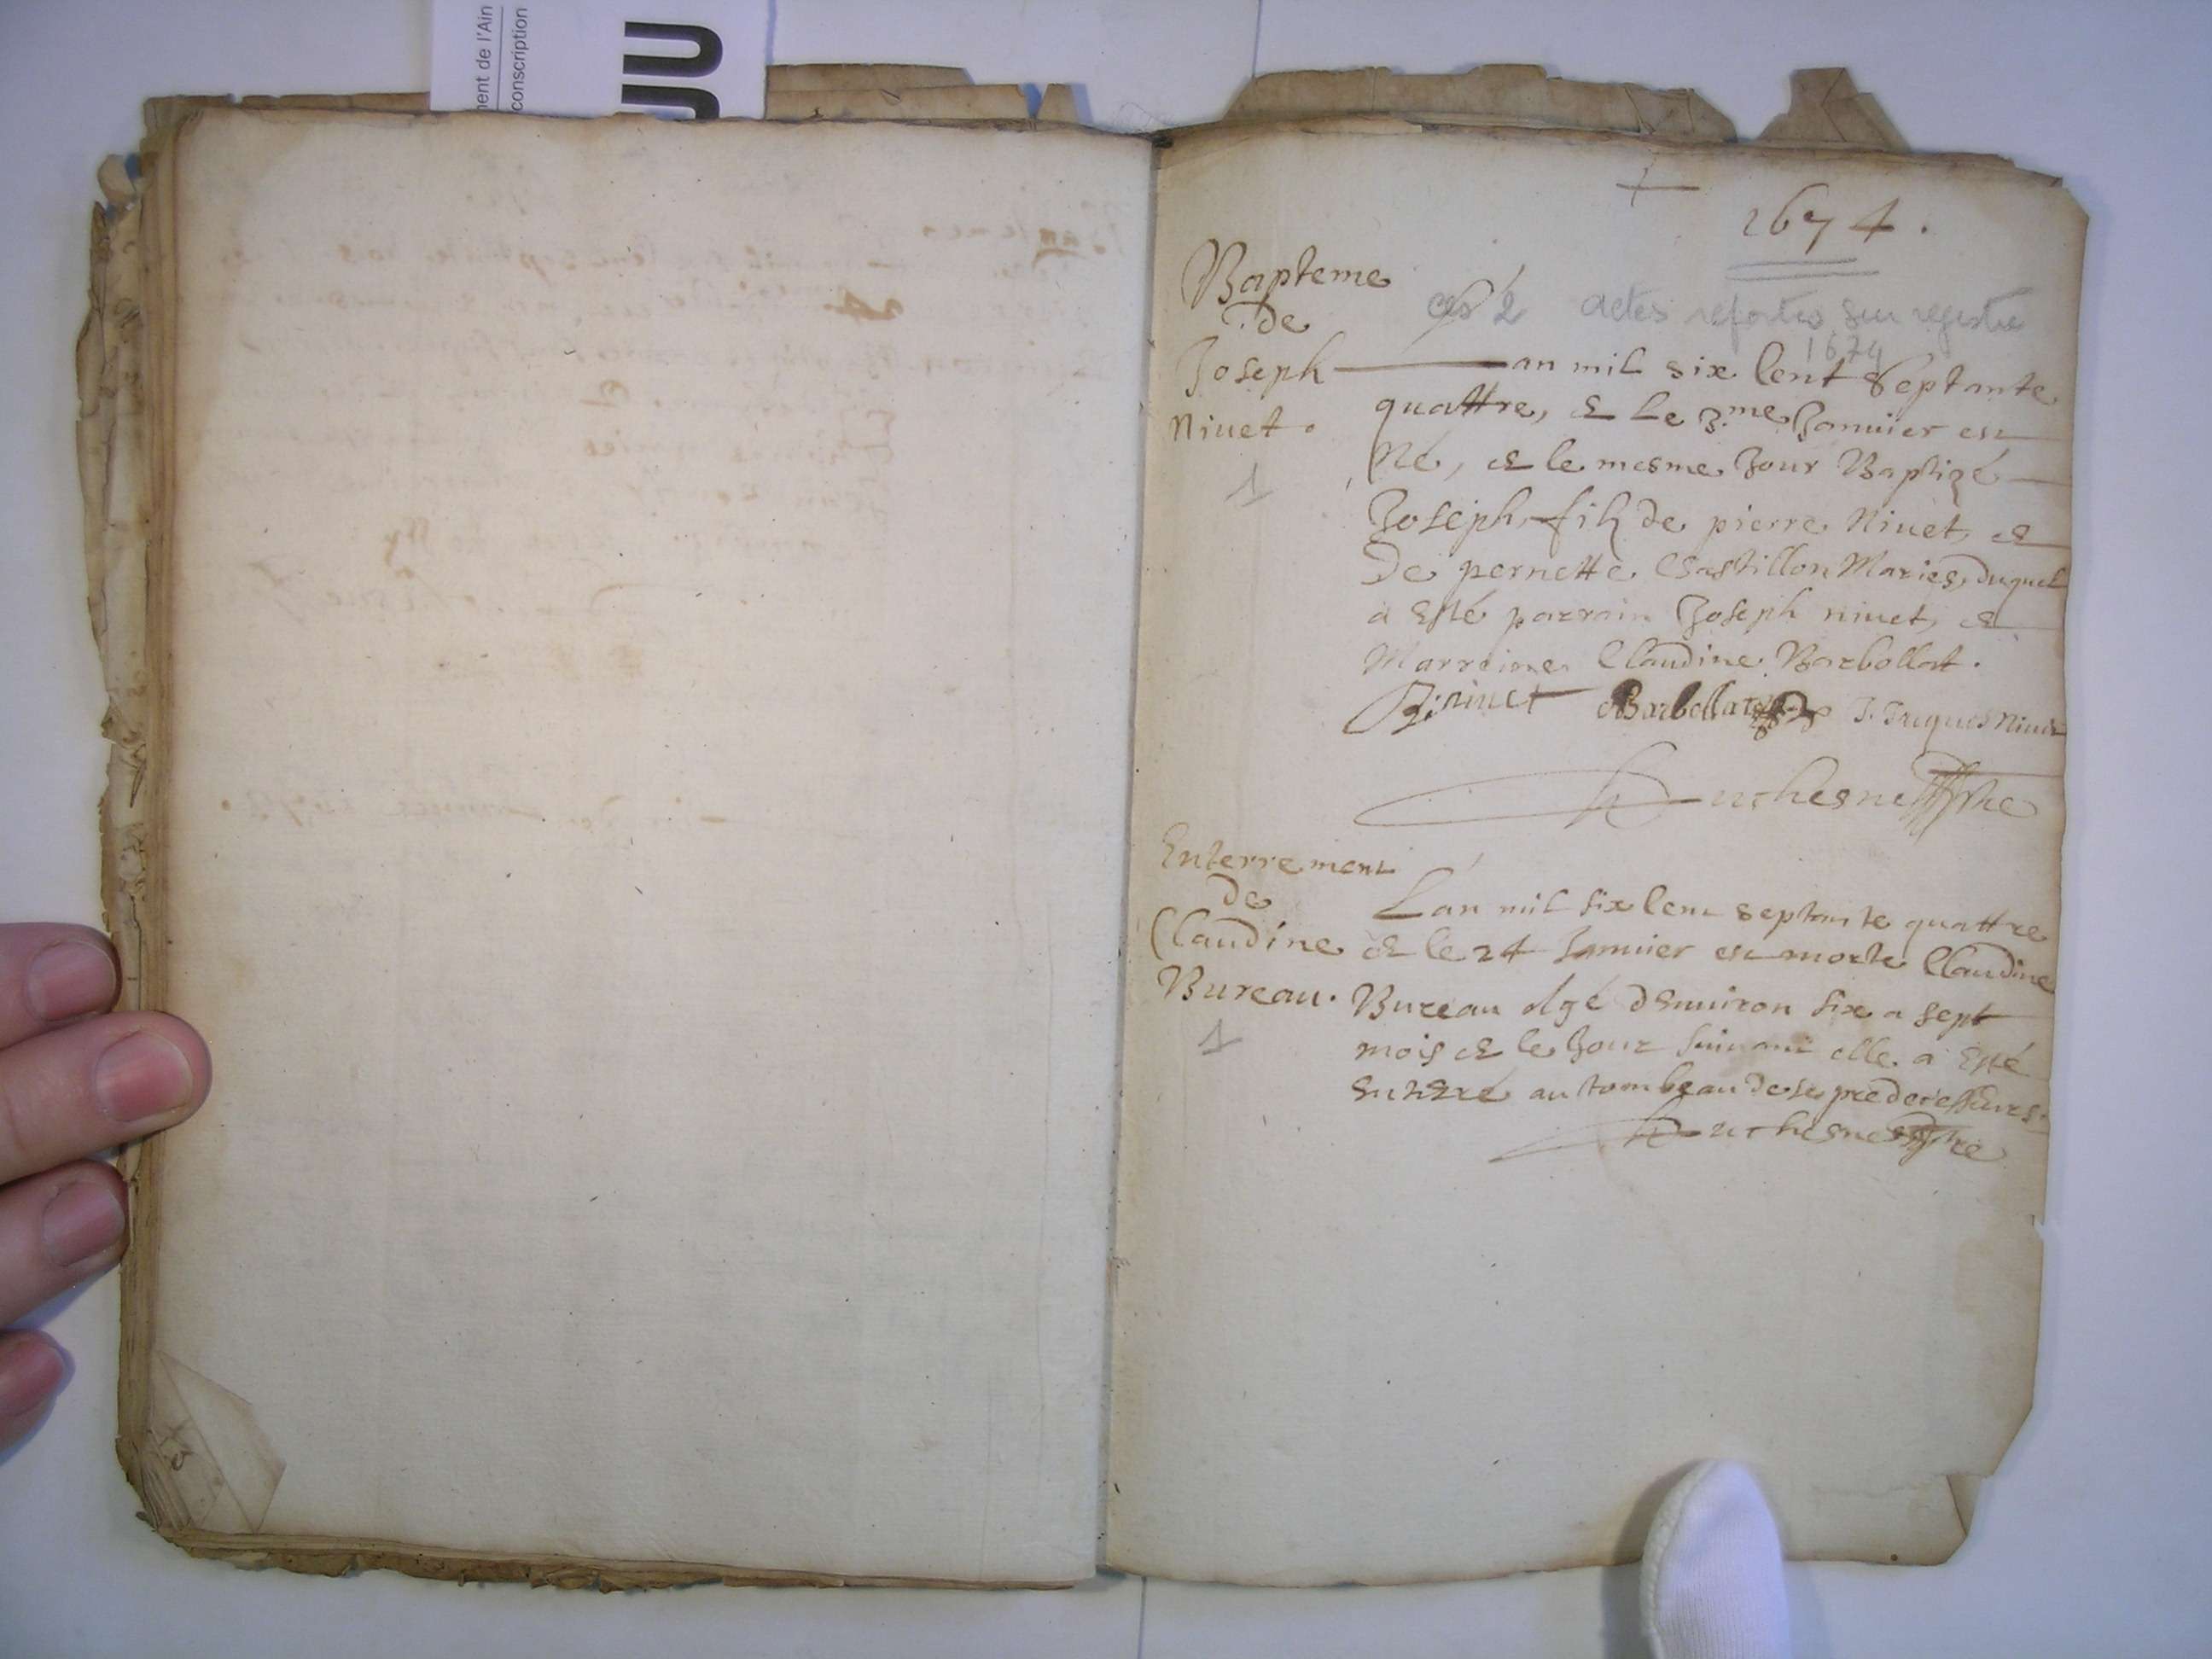 ment de l'Ain
conscription
1674.
Bapteme
de
Joseph
Niuet.
1
ces 2 actes reportés sur registre
1674
L'an mil six Cent Septante
quattre, & Le 3.me Januier est
Né, & le mesme Jour Baptizé
Joseph, filz de pierre Niuet, &
De pernette Chastillon Mariés, Duquel
a Esté parrain Joseph niuet, &
Marreine Claudine Barbollat.
J. niuet Barbollat J. Jaques Niuet
Duchesne Ptre
Enterrement
de
Claudine
Bureau.
1
L'an mil six Cent septante quattre
& le 24 Januier est morte Claudine
Bureau Agé d'Enuiron six a sept
mois & le Jour suiuant elle a Esté
Enterré au tombeau de ses predecesseurs.
Duchesne Ptre